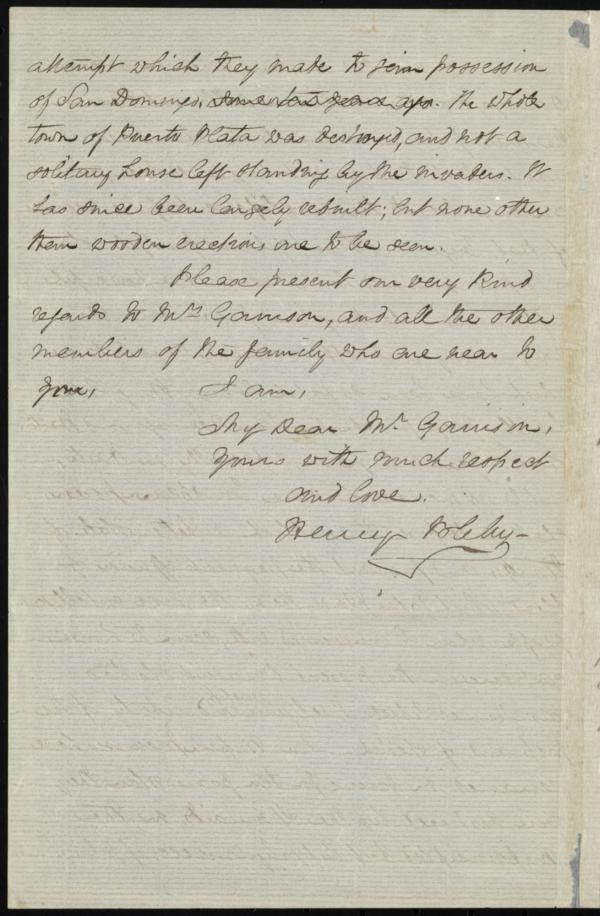 attempt which they made to gain possession
of San Domingo, some ten years ago. The whole
town of Puerto Plata was destroyed, and not a
solitary house left standing by the invaders. It
has since been largely rebuilt; but none other
than wooden erections are to be seen.
Please present our very kind
regards to Mrs Garrison, and all the other
members of the family who are near to
you,   I am,
My Dear Mr. Garrison,
Yours with much respect
and love.
Henry Bleby-